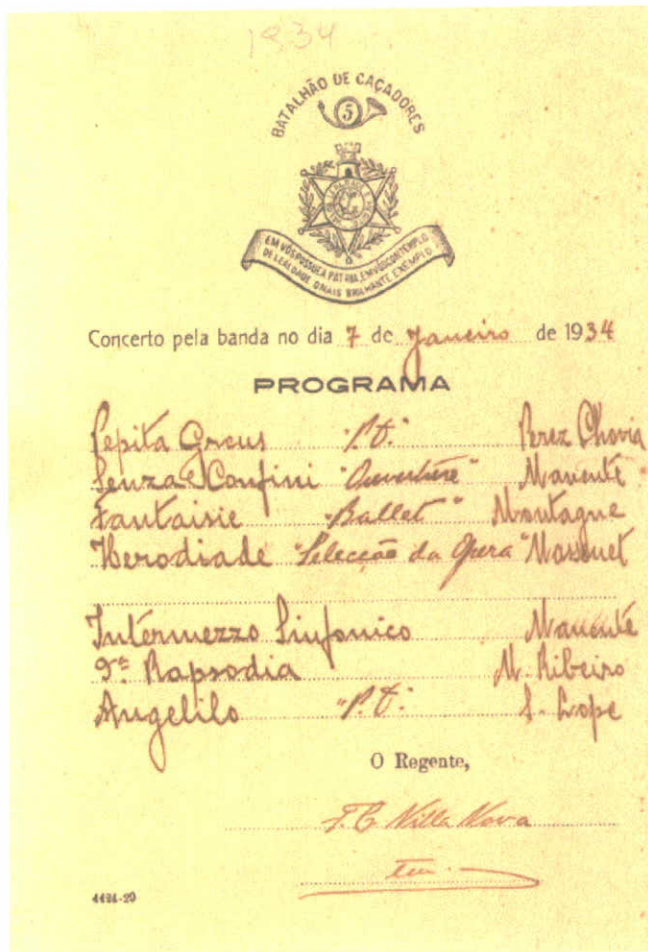 1934
BATALHÃO DE CAÇADORES
5
EM VÓS POSSUE A PATRIA, EM VÓS CONTEMPLO
DE LEALDADE O MAIS BRILHANTE EXEMPLO
Concerto pela banda no dia 7 de Janeiro de 1934
PROGRAMA
Pepita Greus "P.D." Perez Chovia
Senza Confini "Ouverture" Manente
Fantaisie "Ballet" Montagne
Herodiade "Selecção da Opera" Massenet
Intermezzo Sinfonico Manente
9ª Rapsodia M. Ribeiro
Angelilo "P.D." S. Lope
O Regente,
F. C. Villa Nova
4424-29